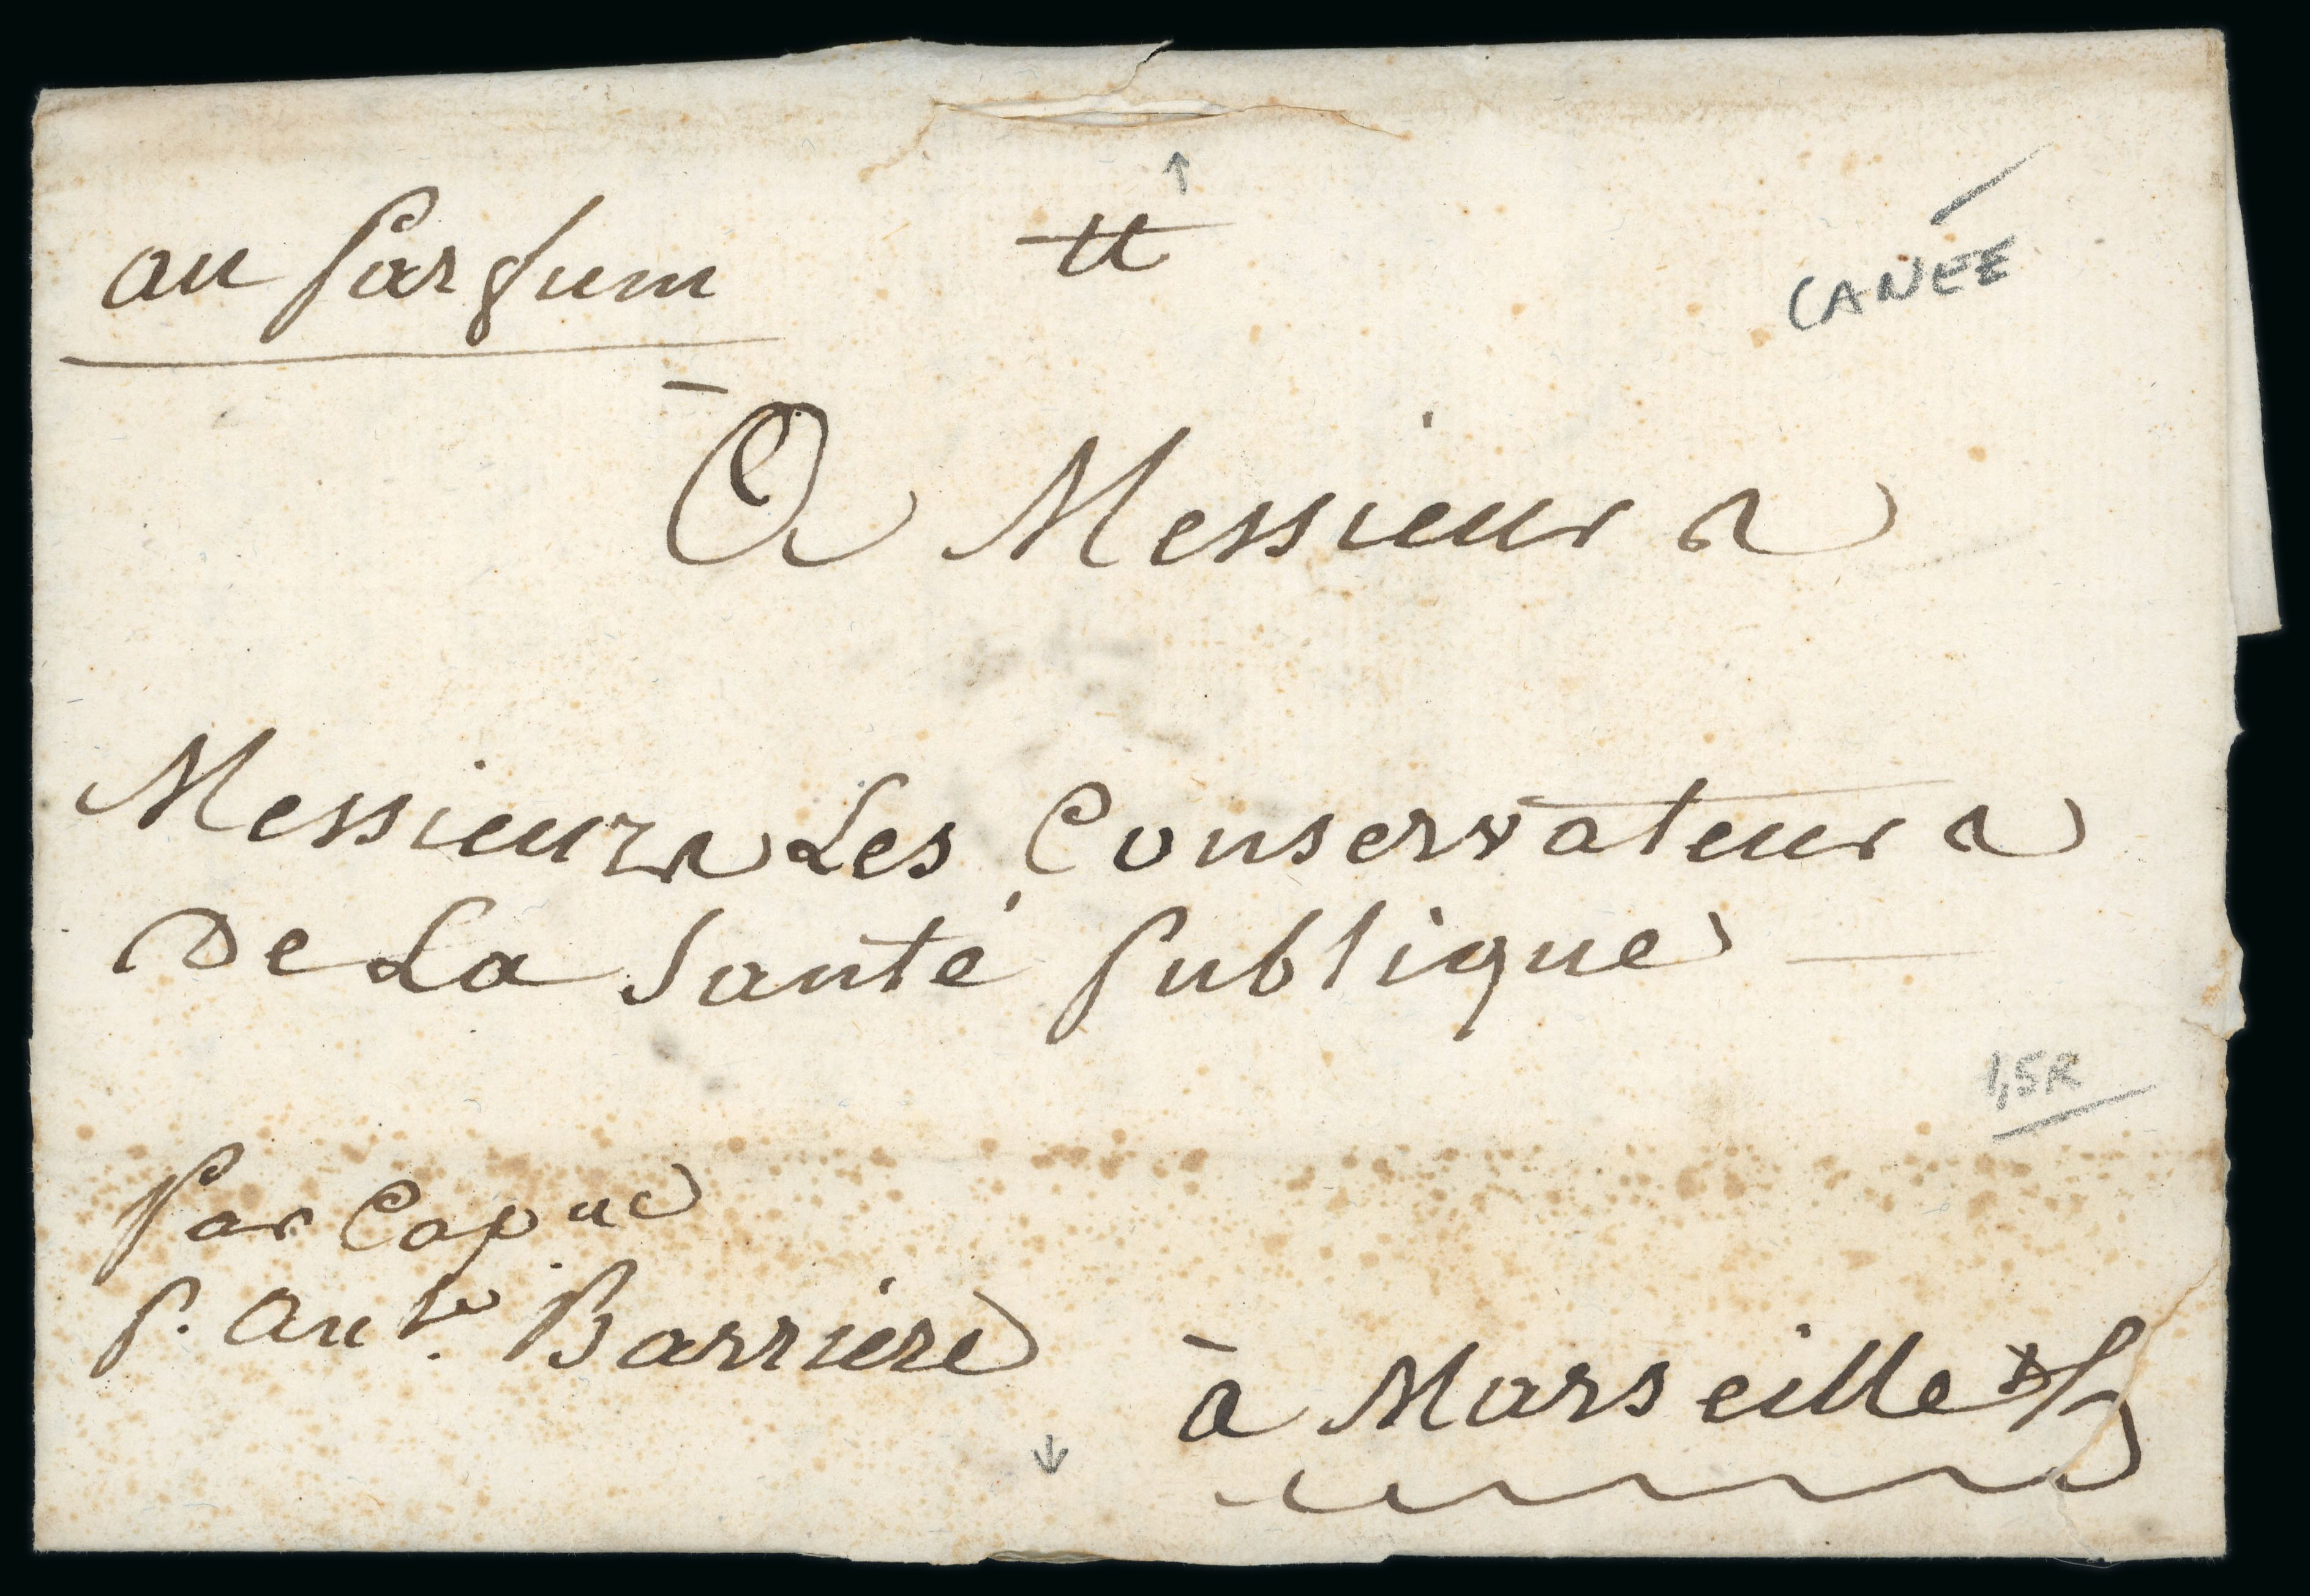 au parfum
CANÉE
À Messieurs
Messieurs Les Conservateurs
De La Santé Publique
1,5R
Par Cap ne
P. Ant. Barriere
à Marseille